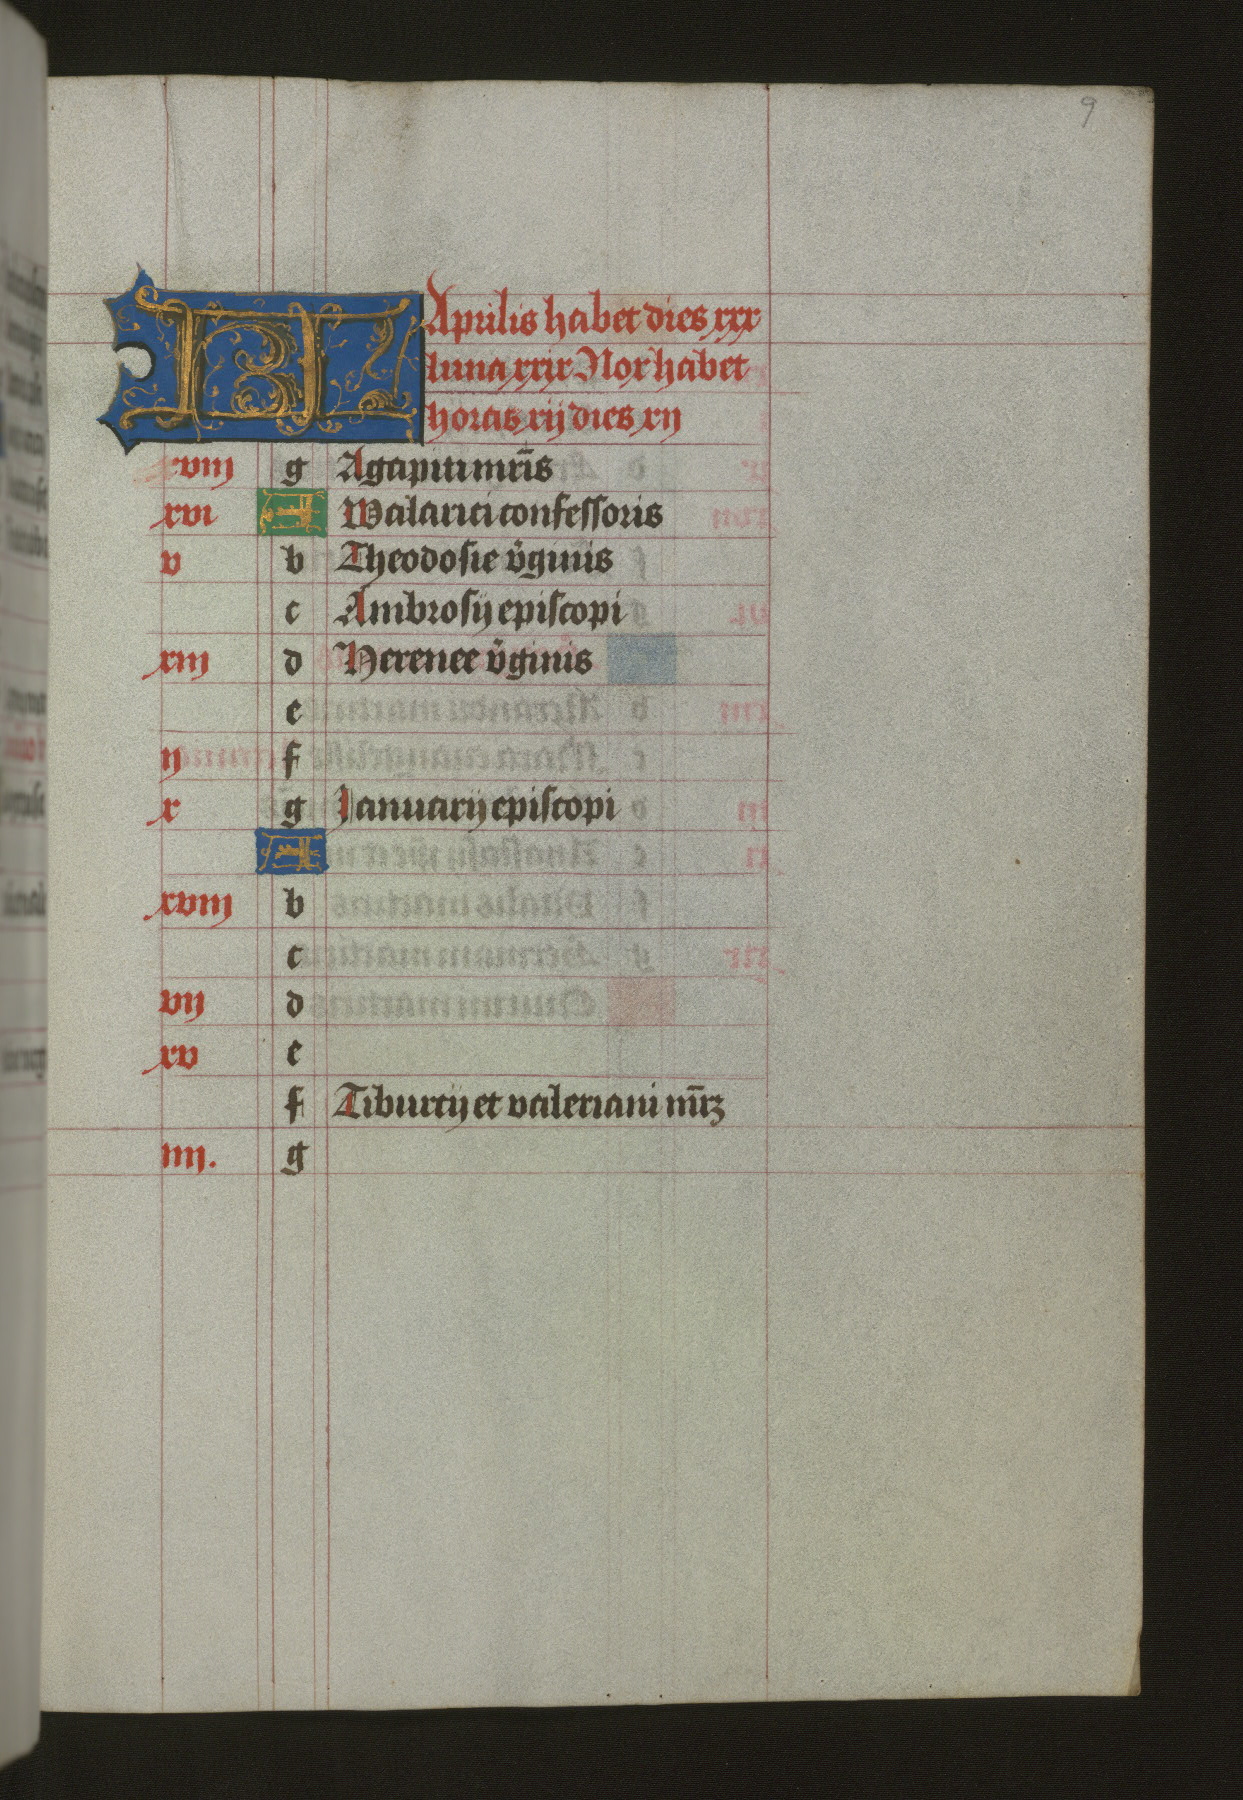 9
KL Aprilis habet dies xxx
luna xxix Nox habet
horas xij dies xij
xviij g Agapiti mr̄is
xvi A Walarici confessoris
v b Theodosie v̄ginis
c Ambrosij episcopi
xiij d Herenee v̄ginis
e
ij f
x g Januarij episcopi
A
xviij b
c
vij d
xv e
f Tiburcij et valeriani mr̄ꝝ
iiij. g